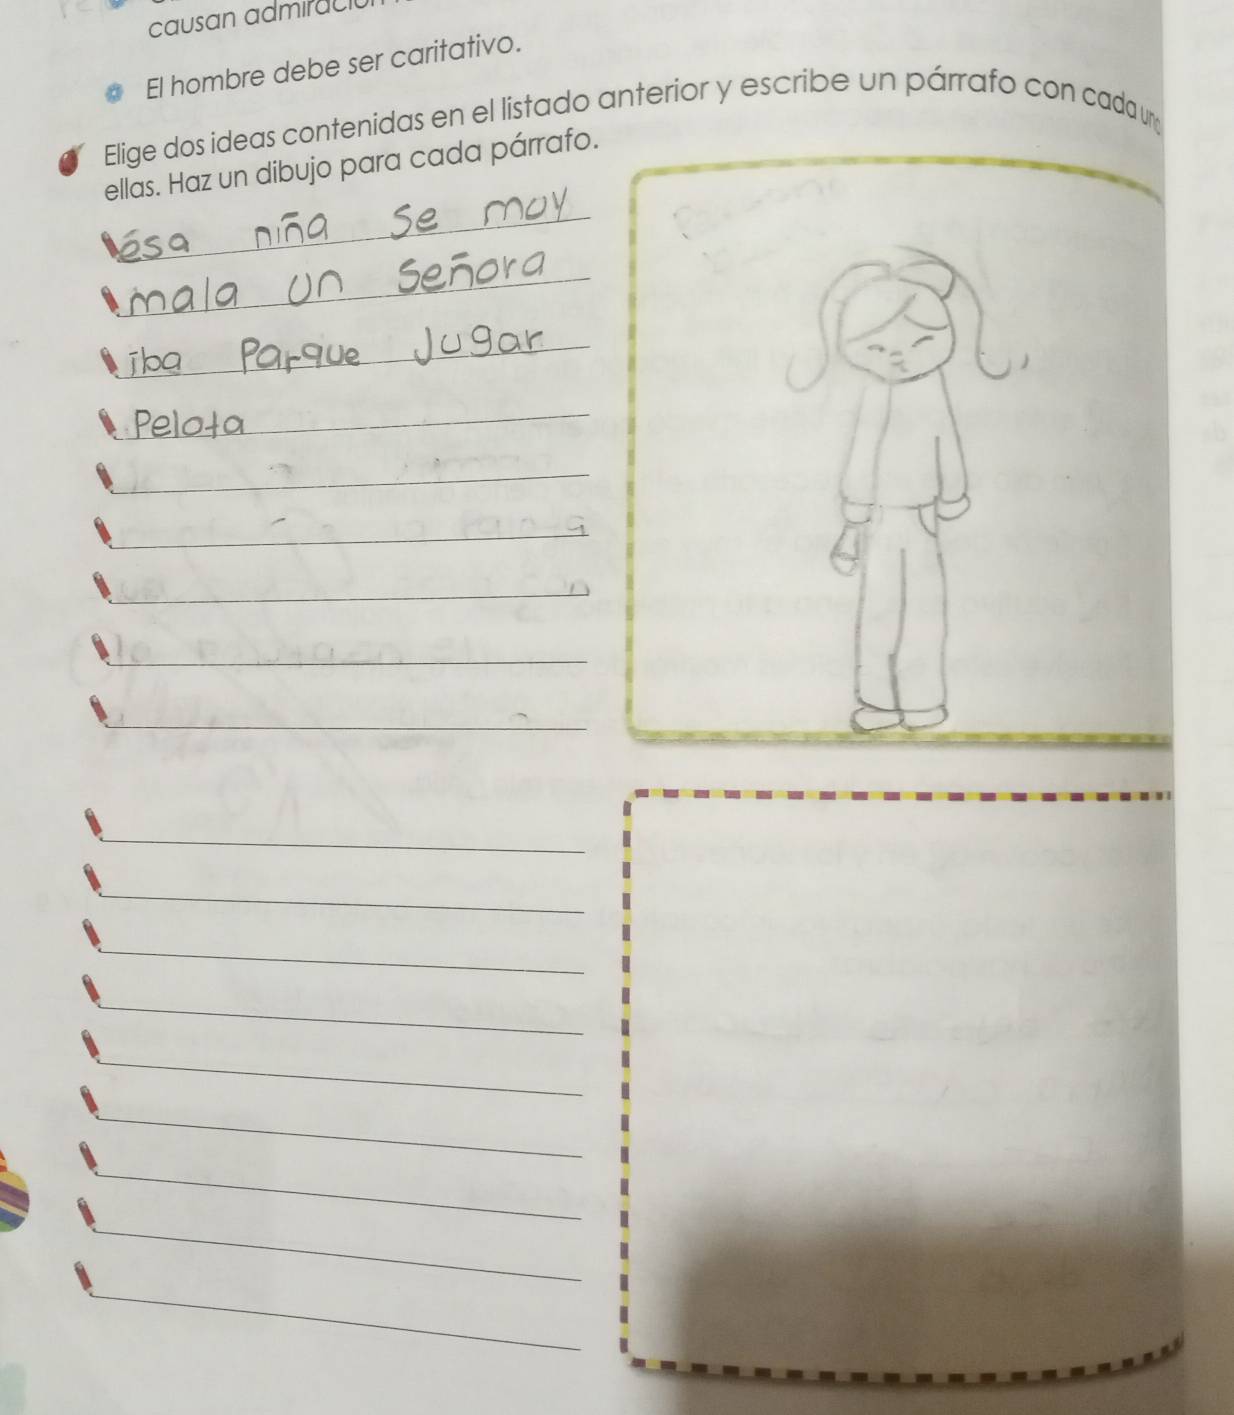 causan
El hombre debe ser caritativo.
Elige dos ideas contenidas en el listado anterior y escribe un párrafo con cada
ellas. Haz un dibujo para cada párrafo.
ésa niña se moy
mala un señora
iba Parque Jugar
Pelota